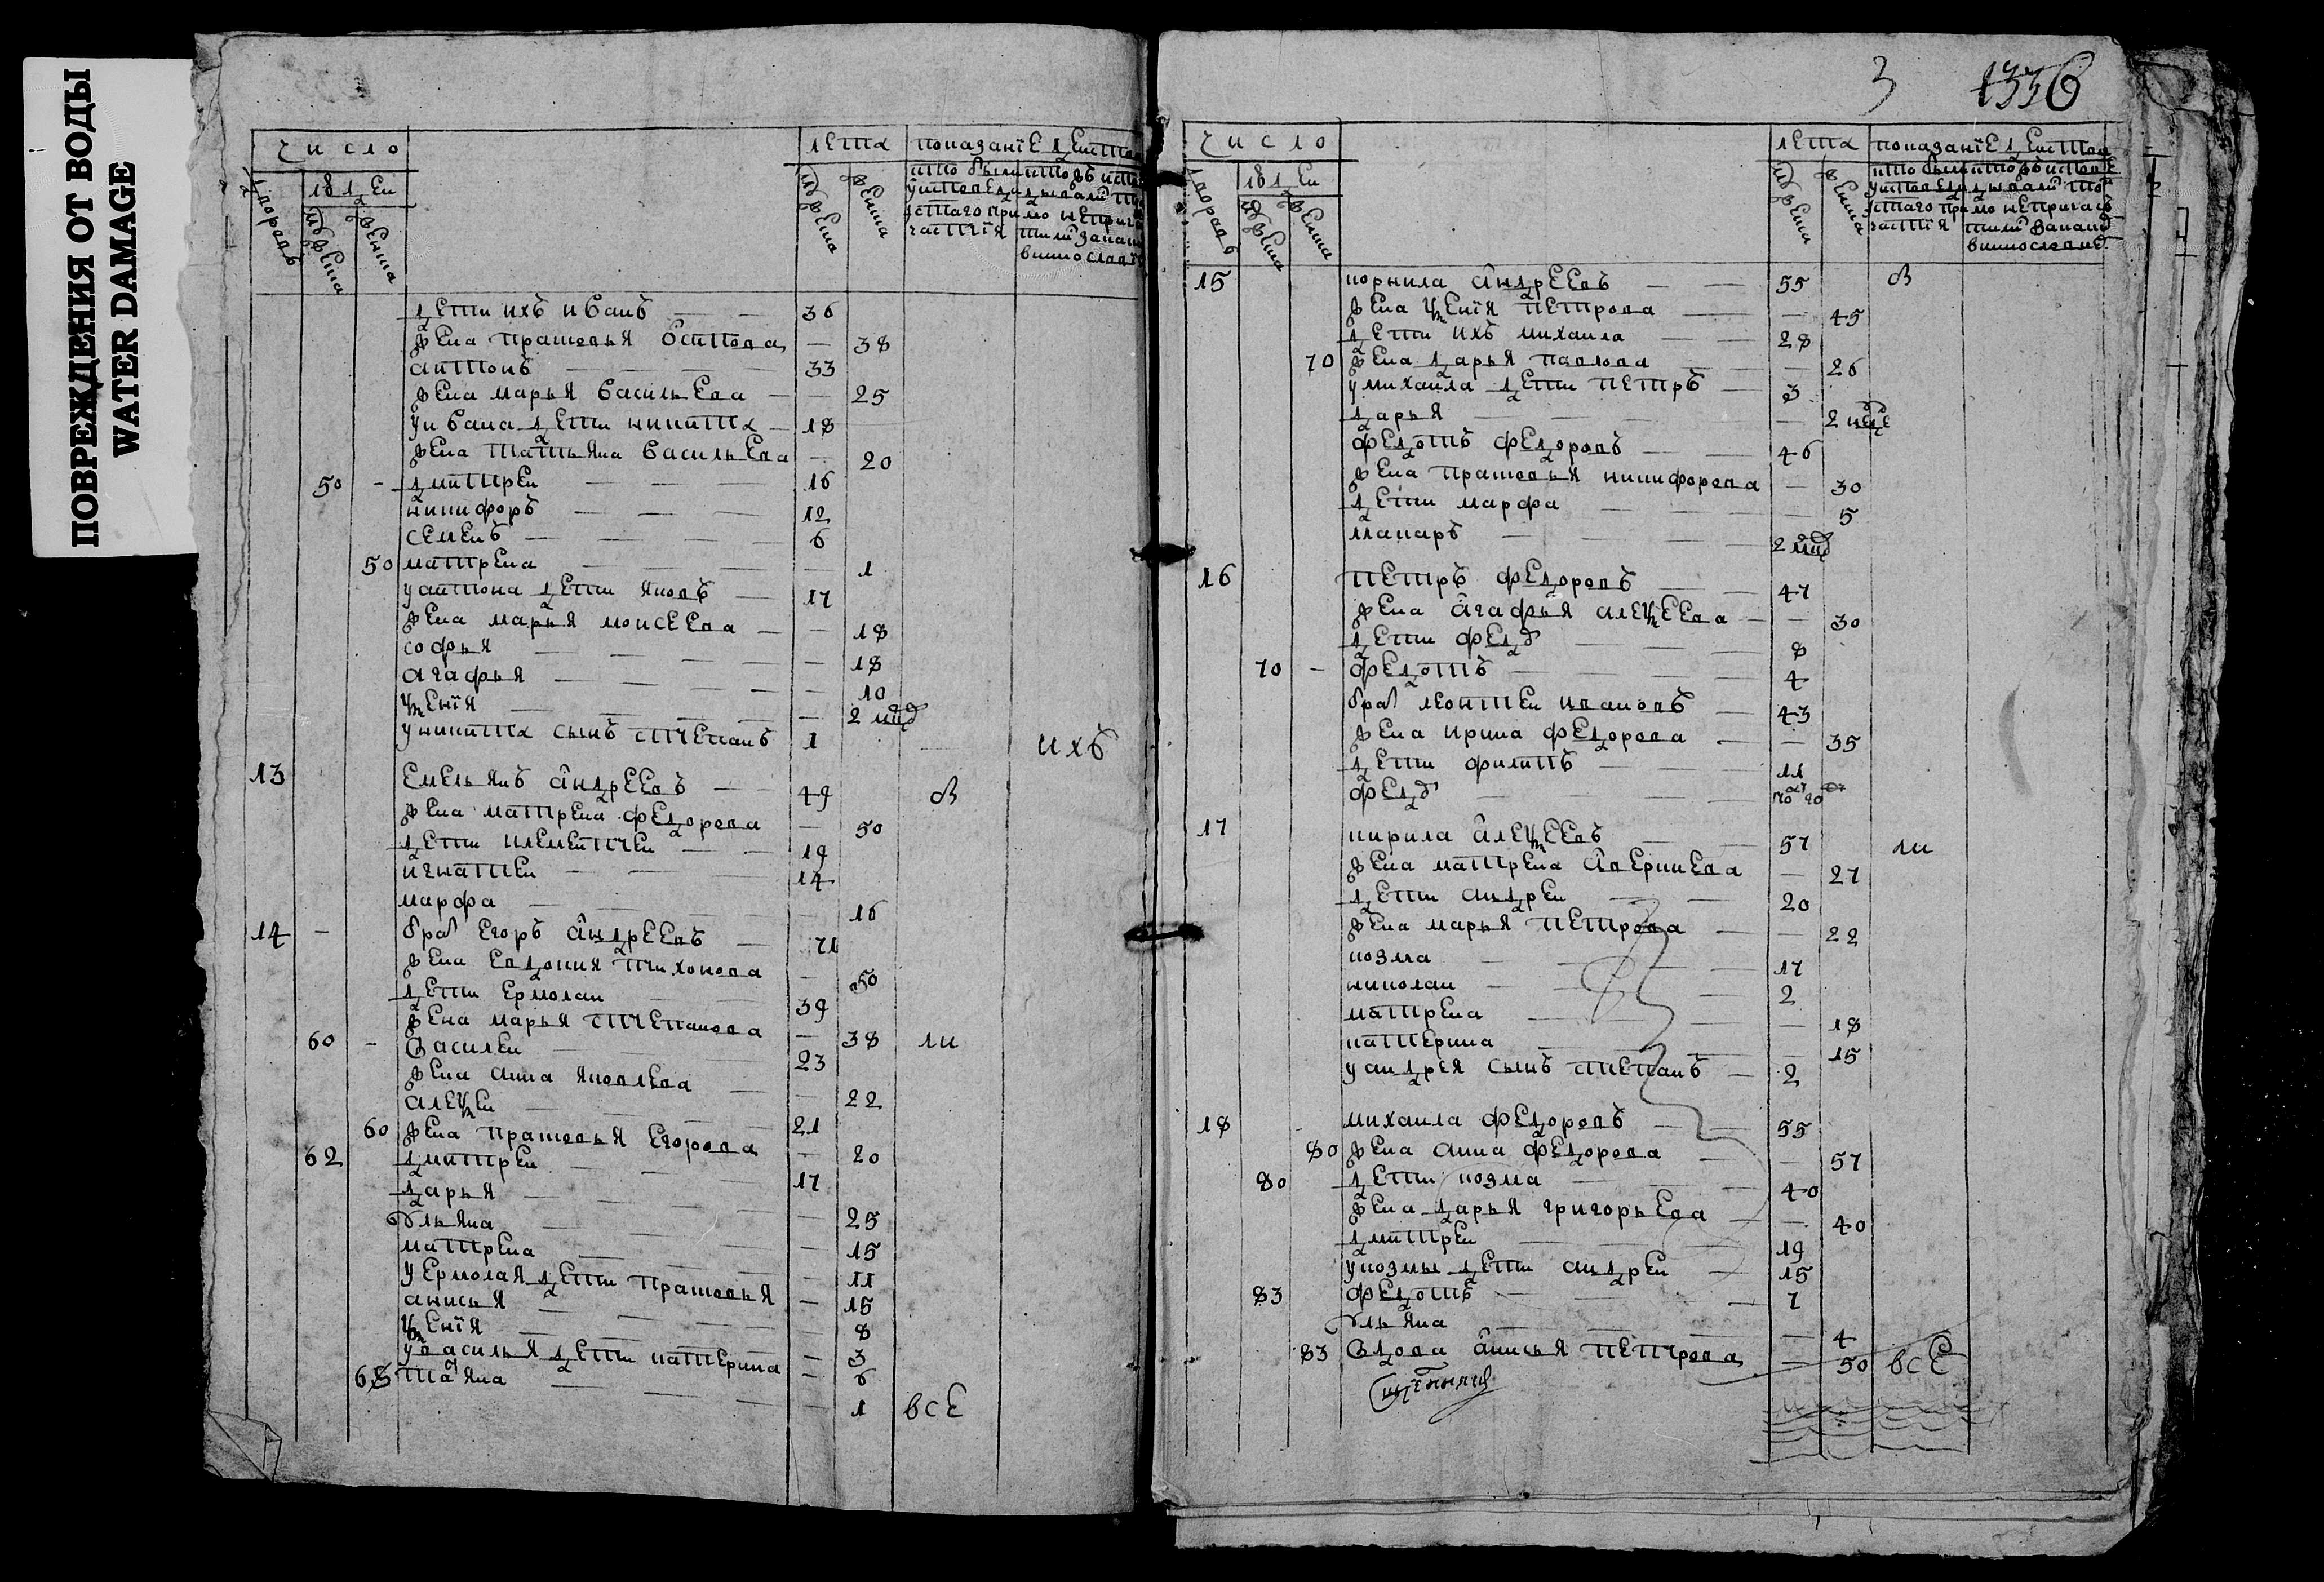 ПОВРЕЖДЕНИЯ ОТ ВОДЫ
WATER DAMAGE
число
лета
показанїе действа
дворовъ
людей
мужеска
женска
мужеска
женска
дети ихъ иванъ 36
жена прасковья осипова 38
антонъ 33
жена марья васильева 25
у ивана дети никита 18
жена татьяна васильева 20
50 дмитрей 16
никифоръ 12
семенъ 6
50 матрена 1
у антона дети яковъ 17
жена марья моисеева 18
софья 18
агафья 10
ксенїя 2 мцд
у никиты сынъ степанъ 1
ихъ
13 емельянъ андреевъ 49 в
жена матрена федорова 50
дети клементей 19
игнатей 14
марфа 16
14 брат егоръ андреевъ 71
жена евдокия тихонова 50
дети ермолаи 39
жена марья степанова 38 ли
60 василеи 23
жена анна яковлева 22
алексеи 21
60 жена прасковья егорова 20
62 дмитреи 17
дарья 25
ульяна 15
матрена 11
у ермолая дети прасковья 15
анисья 8
ксенїя 3
у василья дети катерина 6
65 татяна 1 все
3 1336
число
лета
показанїе действа
дворовъ
людей
мужеска
женска
мужеска
женска
15 корнила андреевъ 55 в
жена ксенїя петрова 45
дети ихъ михаила 28
70 жена дарья павлова 26
у михаила дети петръ 3
дарья 2 неде
федотъ федоровъ 46
жена прасковья никифорова 30
дети марфа 5
макаръ 2 мцд
16 петръ федоровъ 47
жена агафья алексеева 30
дети федр 8
70 федотъ 4
брат леонтеи ивановъ 43
жена ирина федорова 35
дети филипъ 11
федр
17 кирила алексеевъ 57 ли
жена матрена аверкиева 27
дети андреи 20
жена марья петрова 22
козма 17
николаи 2
матрена 18
катерина 15
у андрея сынъ степанъ 2
18 михаила федоровъ 55
80 жена анна федорова 57
80 дети козма 40
жена дарья григорьева 40
дмитреи 19
у козмы дети андреи 15
83 федотъ 7
ульяна 4
83 вдова анисья петрова 50 все